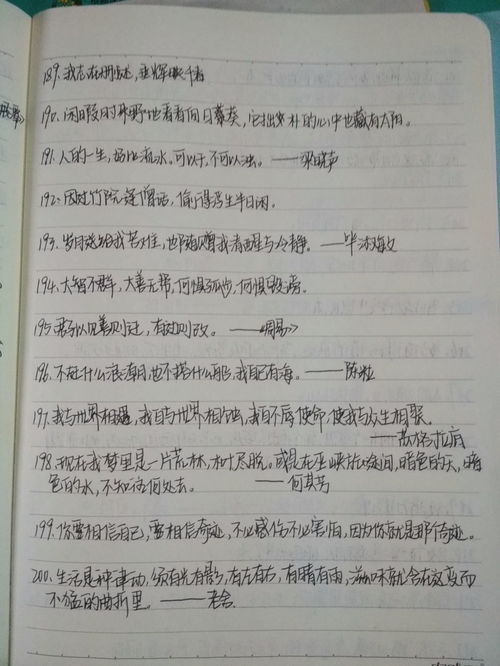 189.我志在删述,垂辉映千春
190.闲暇时来野地看看向日葵葵,它拙朴的心中也藏有太阳。
191.人的一生,好比流水。可以干,不可以浊。——梁晓声
192.因过竹院逢僧话,偷得浮生半日闲。
193.岁月既给我苦难,也随赠我清醒与冷静。——毕淑敏
194.大智不群,大善无帮,何惧孤也,何惧毁谤。
195.君子以见善则迁,有过则改。——《周易》
196.不赶什么浪潮,也不搭什么船,我自己有海。——陈粒
197.我与世界相遇,我自与世界相蚀,我自不辱使命,使我与众生相聚。
——苏格拉底
198.现在我梦里是一片荒林,木叶尽脱。或是在巫峡旅途间,暗色的天,暗
色的水,不知往何处去。——何其芳
199.你要相信自己,要相信奇迹,不必感伤不必害怕,因为你就是那个奇迹。
200.生活是种律动,须有光有影,有左有右,有晴有雨,滋味就含在这变而
不猛的曲折里。——老舍